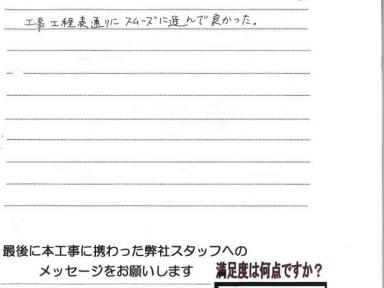 工事工程表通りにスムーズに進んで良かった。
最後に本工事に携わった弊社スタッフへの
メッセージをお願いします
満足度は何点ですか?